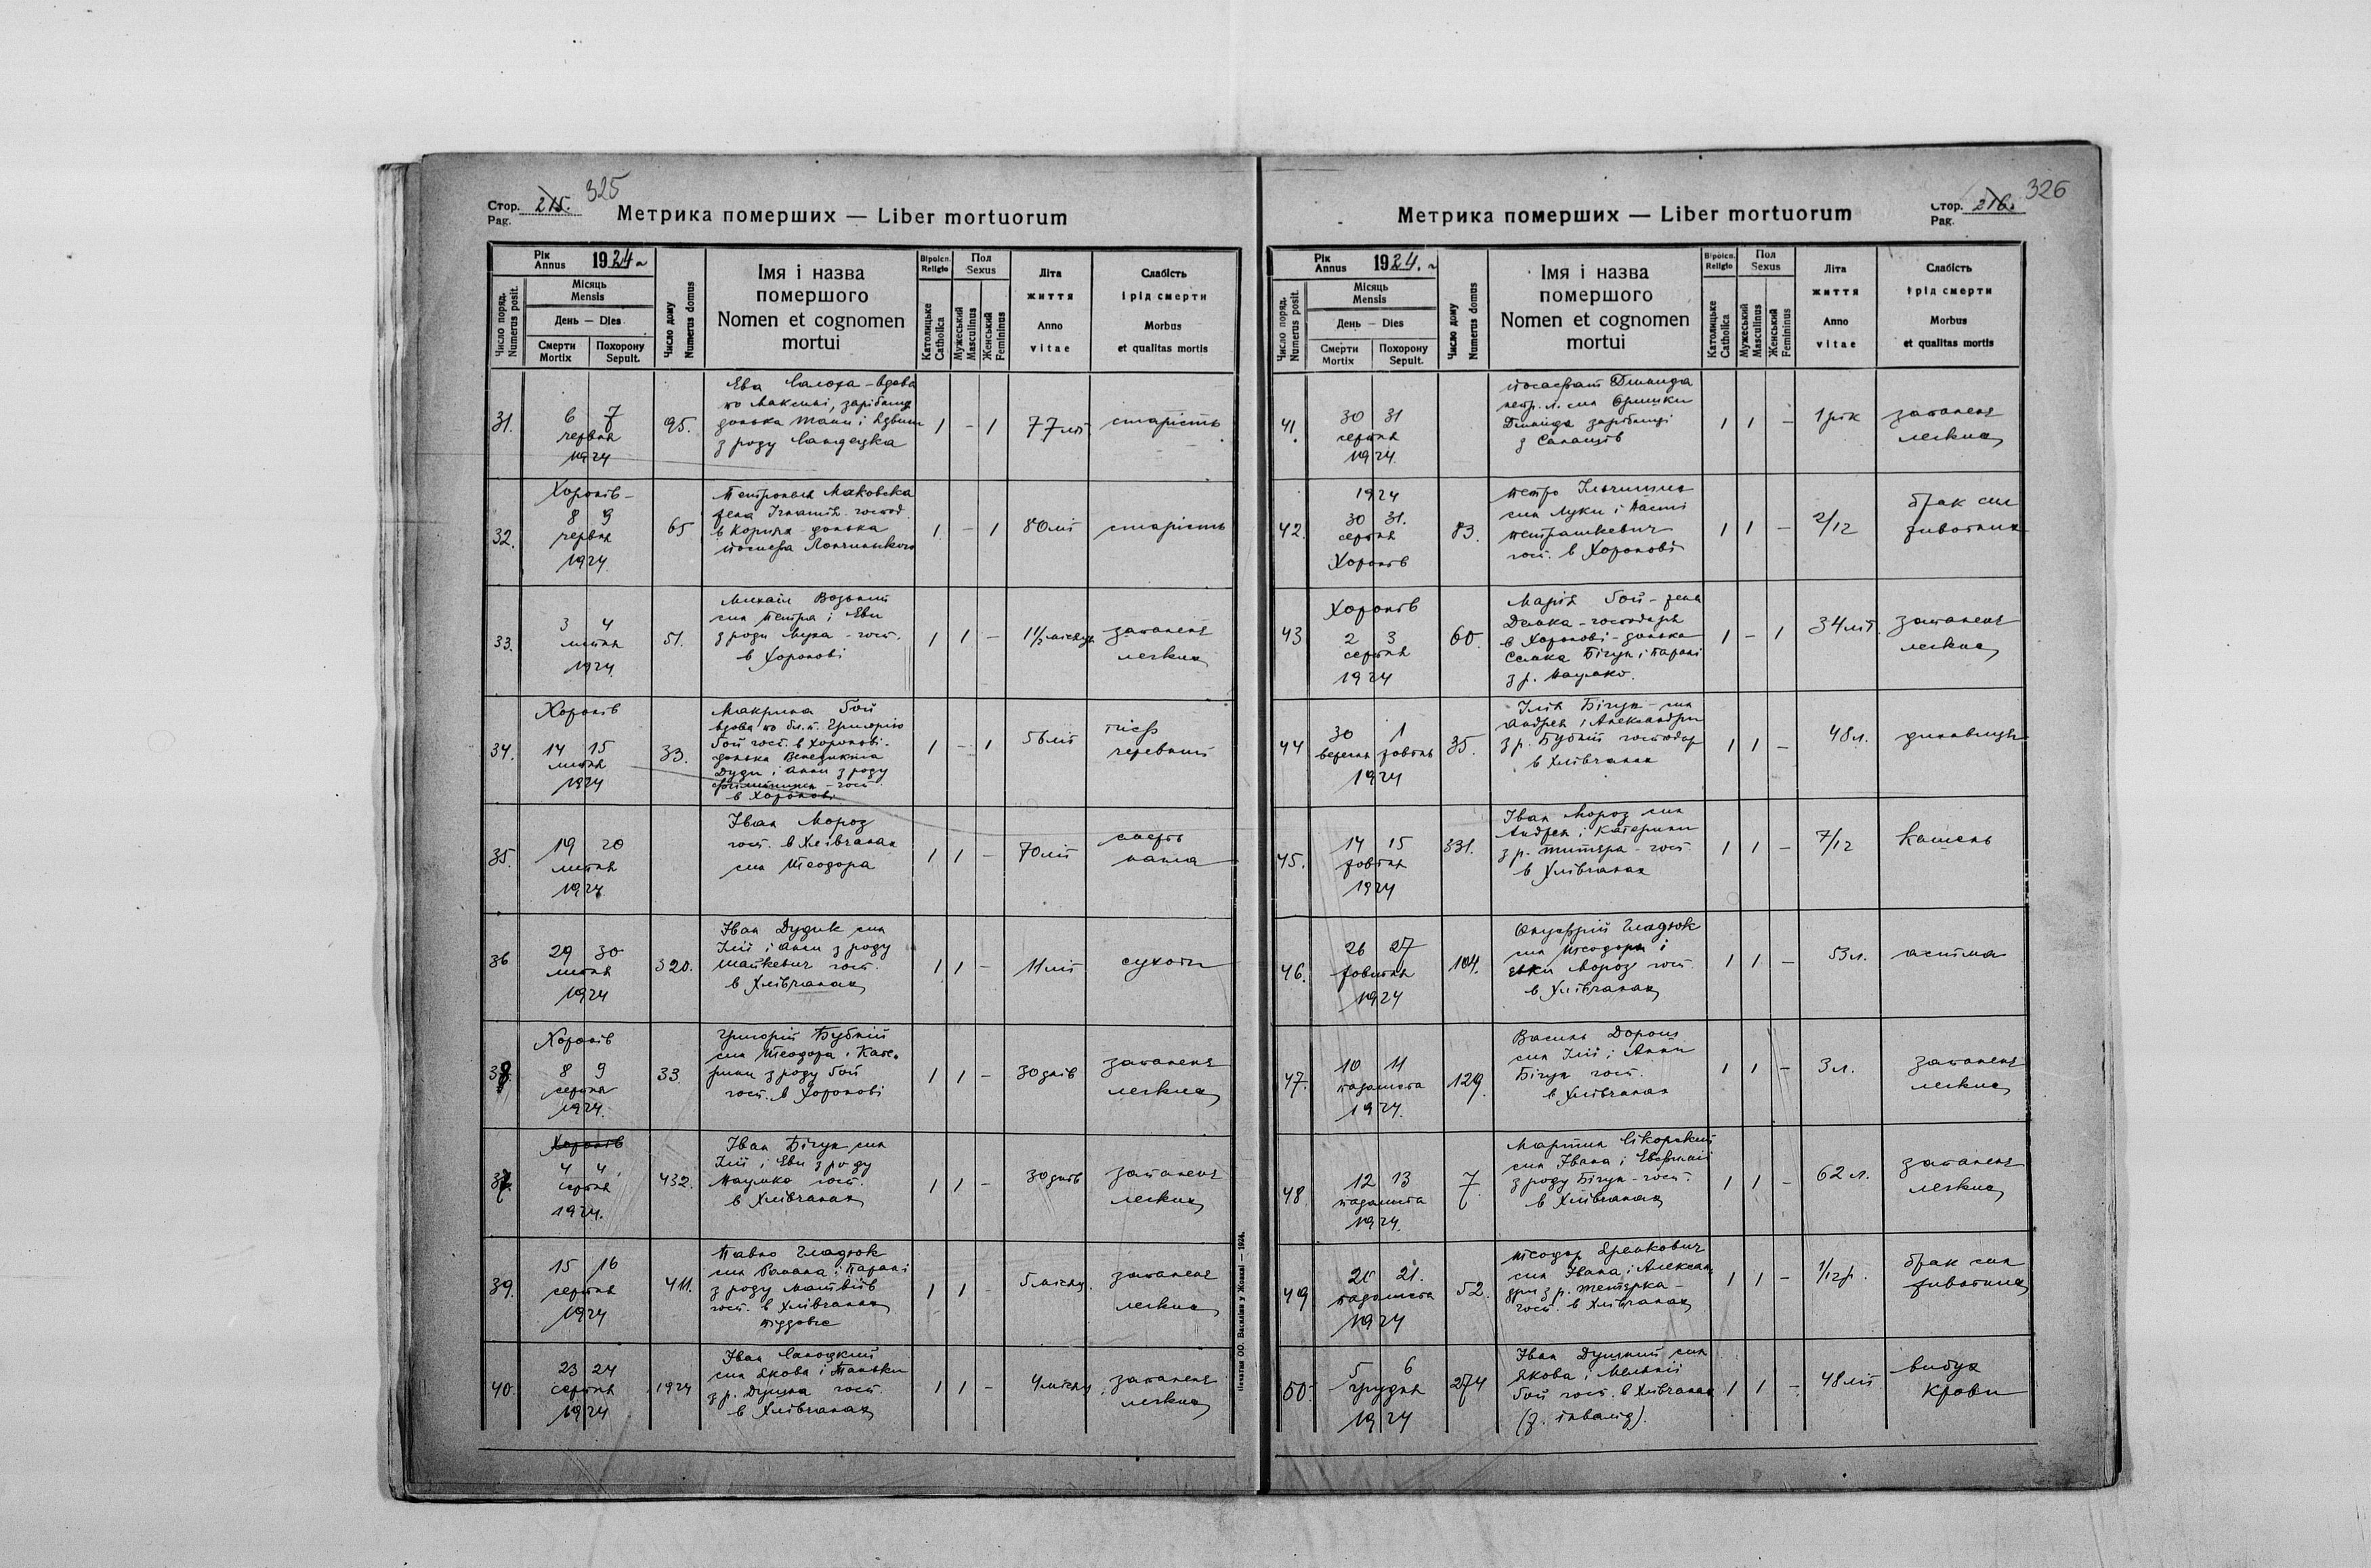 Стор. 215. 325
Pag.
Метрика померших — Liber mortuorum
Рік Annus 1924
Число поряд. Numerus posit.
Місяць Mensis
День — Dies
Смерти Mortix
Похорону Sepult.
Число дому Numerus domus
Імя і назва
помершого
Nomen et cognomen
mortui
Віроісп. Religio
Католицьке Catholica
Пол Sexus
Мужеський Masculinus
Женський Femininus
Літа
життя
Anno
vitae
Слабість
і рід смерти
Morbus
et qualitas mortis
31. 6 7 червня 1924 95.
Ева вдова
по Максимі,
донька і
з роду
1 – 1 77 літ старість
Хоронів
32. 8 9 червня 1924 65
Маковска
жена господ.
в донька
Йосифа
1 – 1 80 літ старість
33. 3 4 липня 1924 51.
Михаіл
син Петра і Еви
з роду Муха – госп.
в Хоронові
1 1 – 1 1/2 місяця запаленє легких
Хоронів
34. 14 15 липня 1924 33.
Макрина Гой
вдова по бл. п. Григорію
Гой госп. в Хоронові.
донька Венедикта
Дуди і Анни з роду
госп.
в Хоронові
1 – 1 56 літ тіф черевний
35. 19 20 липня 1924
Іван Мороз
госп. в Хлівчанах
син Теодора
1 1 – 70 літ смерть нагла
36 29 30 липня 1924 320.
Іван Дудик син
Ілії і Анни з роду
Шапкевич госп.
в Хлівчанах
1 1 – 11 літ сухоти
Хоронів
38. 8 9 серпня 1924. 33
Григорій Бубній
син Теодора і Кате-
рини з роду Гой
госп. в Хоронові
1 1 – 30 днів запаленє легких
Хоронів
37. 4 4 серпня 1924. 432.
Іван Бігун син
Ілії і Еви з роду
Наумко госп.
в Хлівчанах
1 1 – 30 днів запаленє легких
39. 15 16 серпня 1924 411.
Павло Гладюк
син Романа і Парані
з роду Матвіїв
госп. в Хлівчанах
Піддовге
1 1 5 місяц. запаленє легких
40. 23 24 серпня 1924 1924
Іван Саноцкий
син Якова і
з р. госп.
в Хлівчанах
1 1 – 4 місяц. запаленє легких
Печатня ОО. Василіян у Жовкві — 1924.
Метрика померших — Liber mortuorum
Стор. 216. 326
Pag.
Рік Annus 1924.
Число поряд. Numerus posit.
Місяць Mensis
День — Dies
Смерти Mortix
Похорону Sepult.
Число дому Numerus domus
Імя і назва
помершого
Nomen et cognomen
mortui
Віроісп. Religio
Католицьке Catholica
Пол Sexus
Мужеський Masculinus
Женський Femininus
Літа
життя
Anno
vitae
Слабість
і рід смерти
Morbus
et qualitas mortis
41. 30 31 серпня 1924.
син
з
1 1 – 1 рік запаленє легких
1924
42. 30 31. серпня Хоронів 83.
Петро
син Луки і Насті
Петрашкевич
госп. в Хоронові
1 1 – 2/12 брак сил животних
Хоронів
43 2 3 серпня 1924 60.
Марія Гой – жена
Демка – господаря
в Хоронові – донька
Семка Бігун і Парані
з р. Наумко.
1 – 1 34 літ запаленє легких
44 30 вересня 1 жовтня 1924 35.
Ілія Бігун – син
Андрея і Александри
з р. Бубній господар
в Хлівчанах
1 1 – 48 л.
45. 14 15 жовтня 1924 331.
Іван Мороз син
Андрея і Катерини
з р. госп.
в Хлівчанах
1 1 – 7/12 Кашель
46. 26 27 жовтня 1924 104.
Онуфрій Гладюк
син Теодора і
Евки Мороз госп.
в Хлівчанах
1 1 – 53 л. астма
47. 10 11 падолиста 1924. 129.
Василь Дорош
син Ілії і Анни
Бігун госп.
в Хлівчанах
1 1 – 3 л. запаленє легких
48 12 13 падолиста 1924. 7.
Мартин Сікорский
син Івана і Евфимії
з роду Бігун – госп.
в Хлівчанах
1 1 – 62 л. запаленє легких
49 21 21. падолиста 1924 52.
Теодор
син Івана і Алексан-
дри з р.
госп. в Хлівчанах
1 1 – 1/12 р. брак сил животних
50. 5 6 грудня 1924 274
Іван син
Якова і Меланії
Гой госп. в Хлівчанах
(ж. інвалід).
1 1 – 48 літ вибух крови